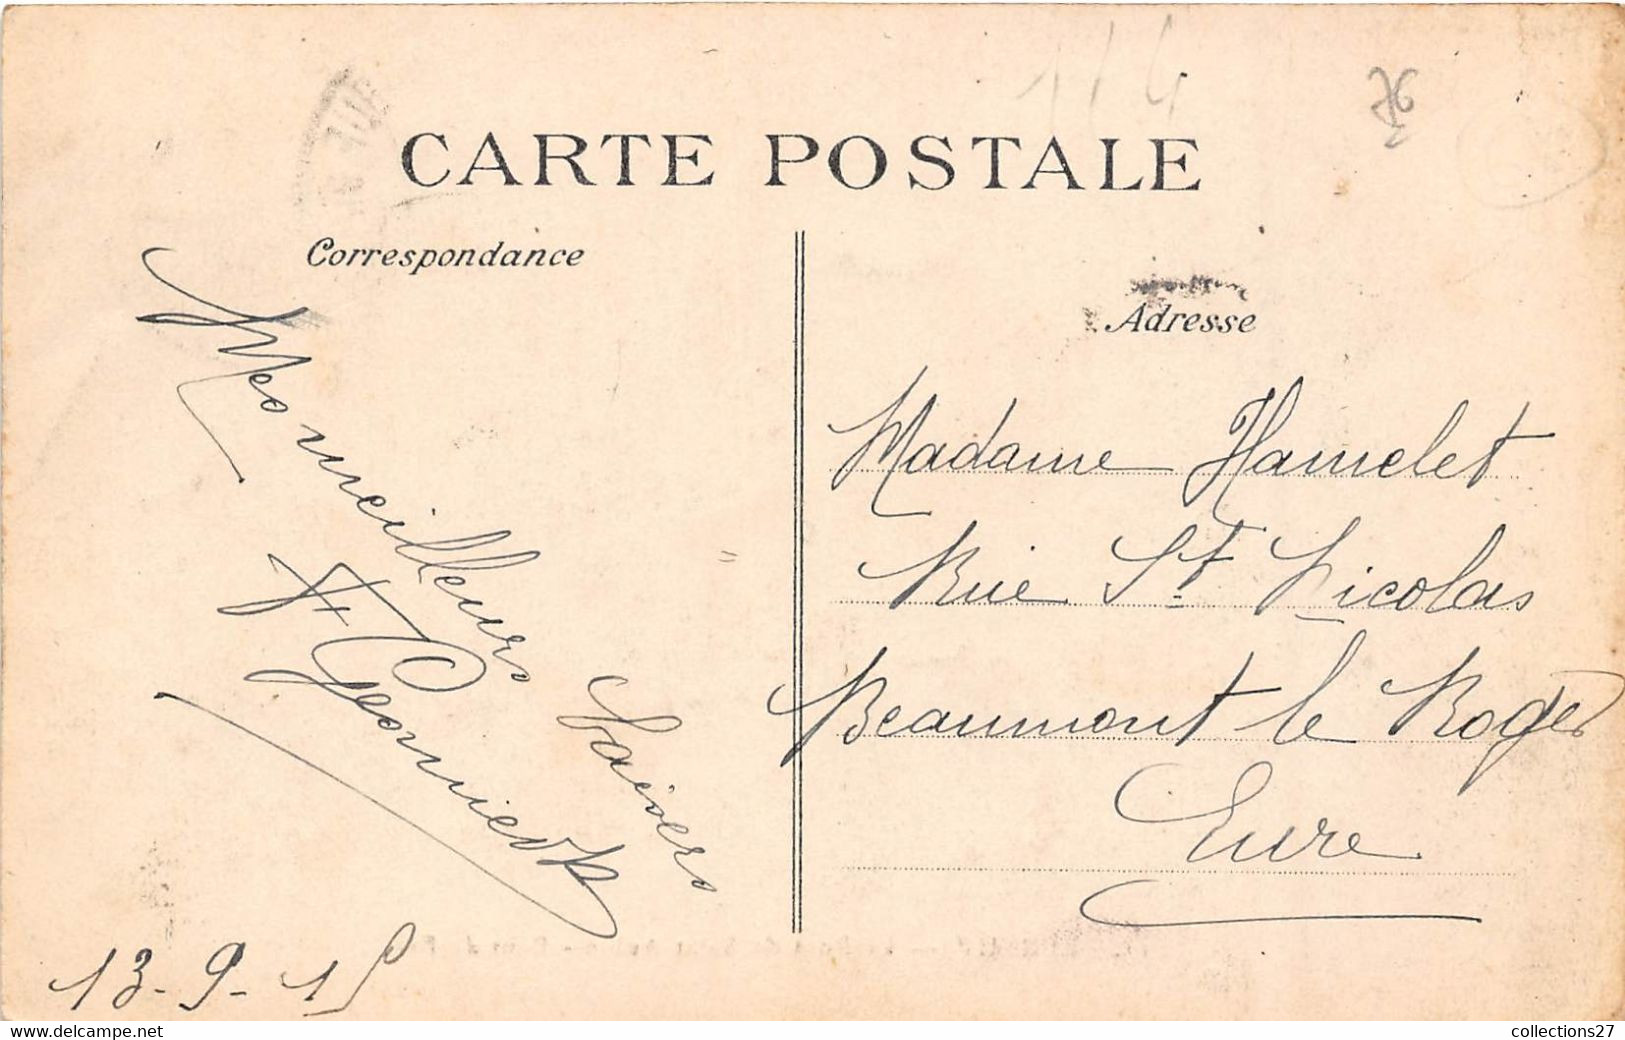 CARTE POSTALE
Correspondance
Adresse
Mes meilleurs
baisers
Madame Hamelet
Rue St Nicolas
Beaumont le Roger
Eure
13-9-15
www.delcampe.net
collections27